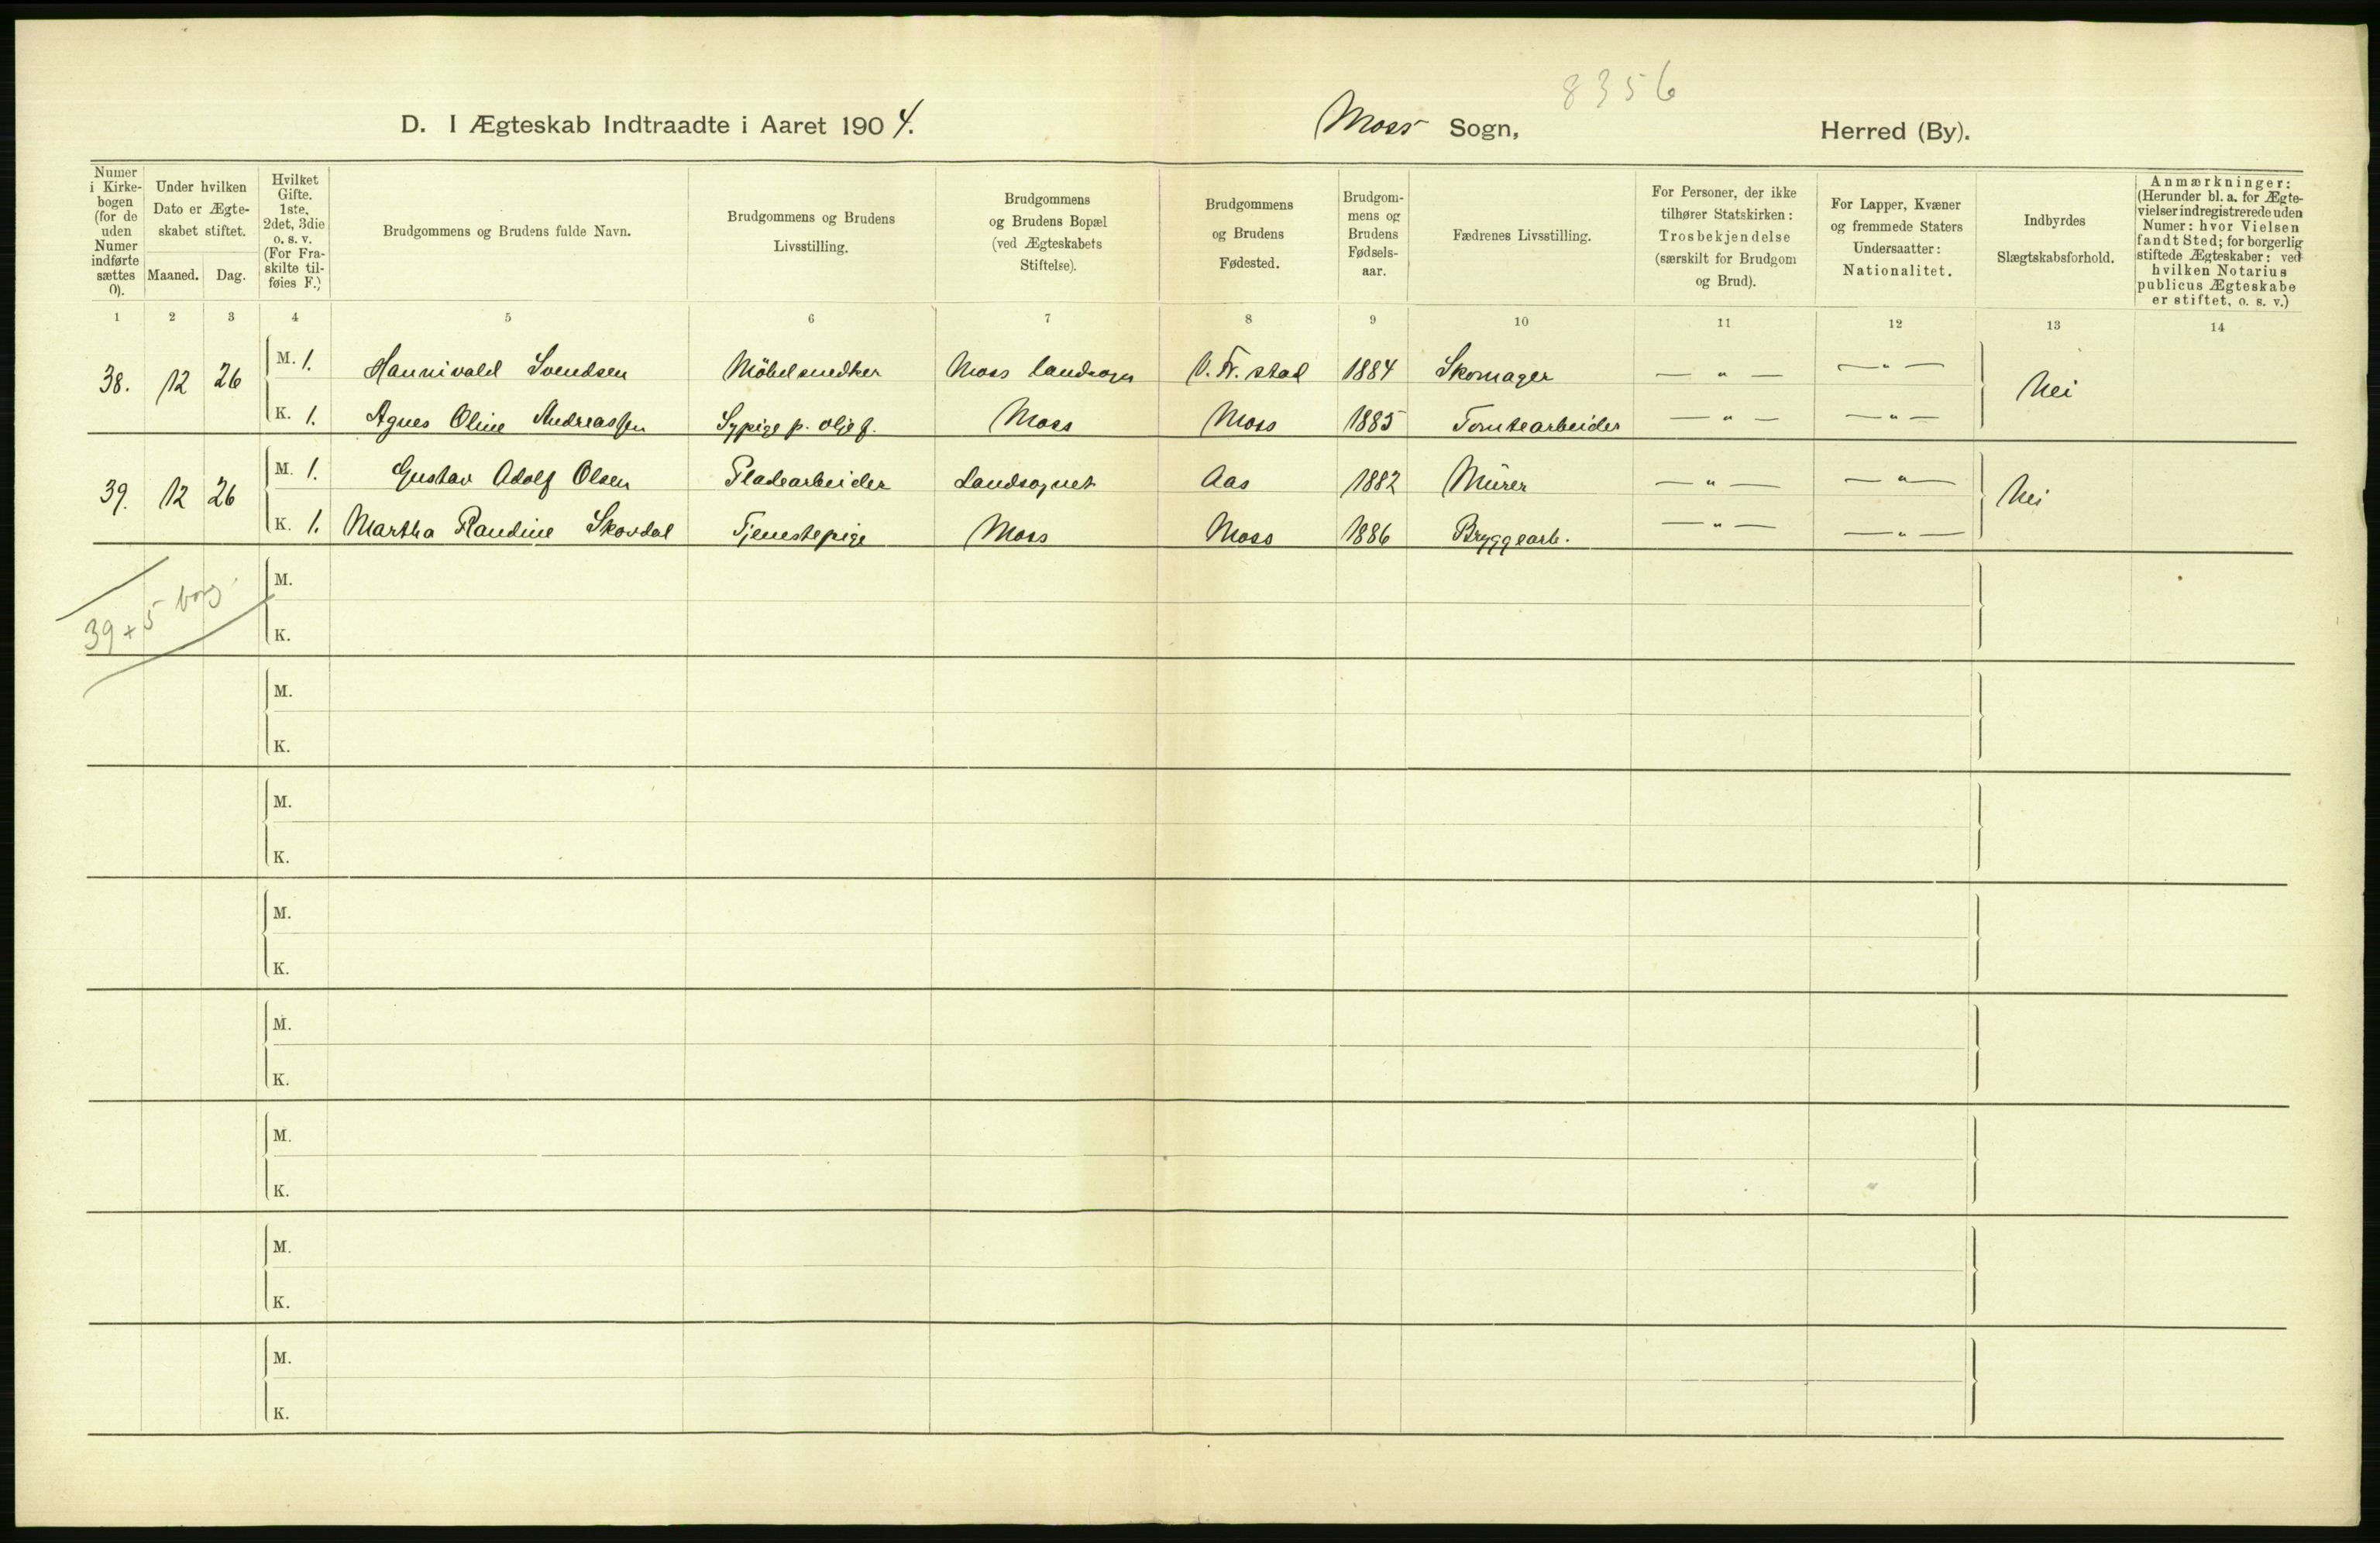 8356
D. I Ægteskab Indtraadte i Aaret 1904.
Moss Sogn, Herred (By).
Numer i Kirkebogen (for de uden Numer indførte sættes 0).
Under hvilken Dato er Ægteskabet stiftet.
Maaned.
Dag.
Hvilket Gifte. 1ste, 2det, 3die o. s. v. (For Fraskilte tilføies F.)
Brudgommens og Brudens fulde Navn.
Brudgommens og Brudens Livsstilling.
Brudgommens og Brudens Bopæl (ved Ægteskabets Stiftelse).
Brudgommens og Brudens Fødested.
Brudgommens og Brudens Fødselsaar.
Fædrenes Livsstilling.
For Personer, der ikke tilhører Statskirken: Trosbekjendelse (særskilt for Brudgom og Brud).
For Lapper, Kvæner og fremmede Staters Undersaatter: Nationalitet.
Indbyrdes Slægtskabsforhold.
Anmærkninger: (Herunder bl. a. for Ægtevielser indregistrerede uden Numer: hvor Vielsen fandt Sted; for borgerlig stiftede Ægteskaber: ved hvilken Notarius publicus Ægteskabet er stiftet, o. s. v.)
1 2 3 4 5 6 7 8 9 10 11 12 13 14
38. 12 26 M. 1. Hannivald Svendsen Möbelsnedker Moss landsogn V. Fr. stad 1884 Skomager — " — — " — Nei
K. 1. Agnes Oline Andreassen Sypige p. oljef. Moss Moss 1885 Tomtearbeider — " — — " —
39. 12 26 M. 1. Gustav Adolf Olsen Pladearbeider Landsognet Aas 1882 Mürer — " — — " — Nei
K. 1. Martha Randine Skovdal Tjenestepige Moss Moss 1886 Bryggearb. — " — — " —
39 + 5 borg.
M.
K.
M.
K.
M.
K.
M.
K.
M.
K.
M.
K.
M.
K.
M.
K.